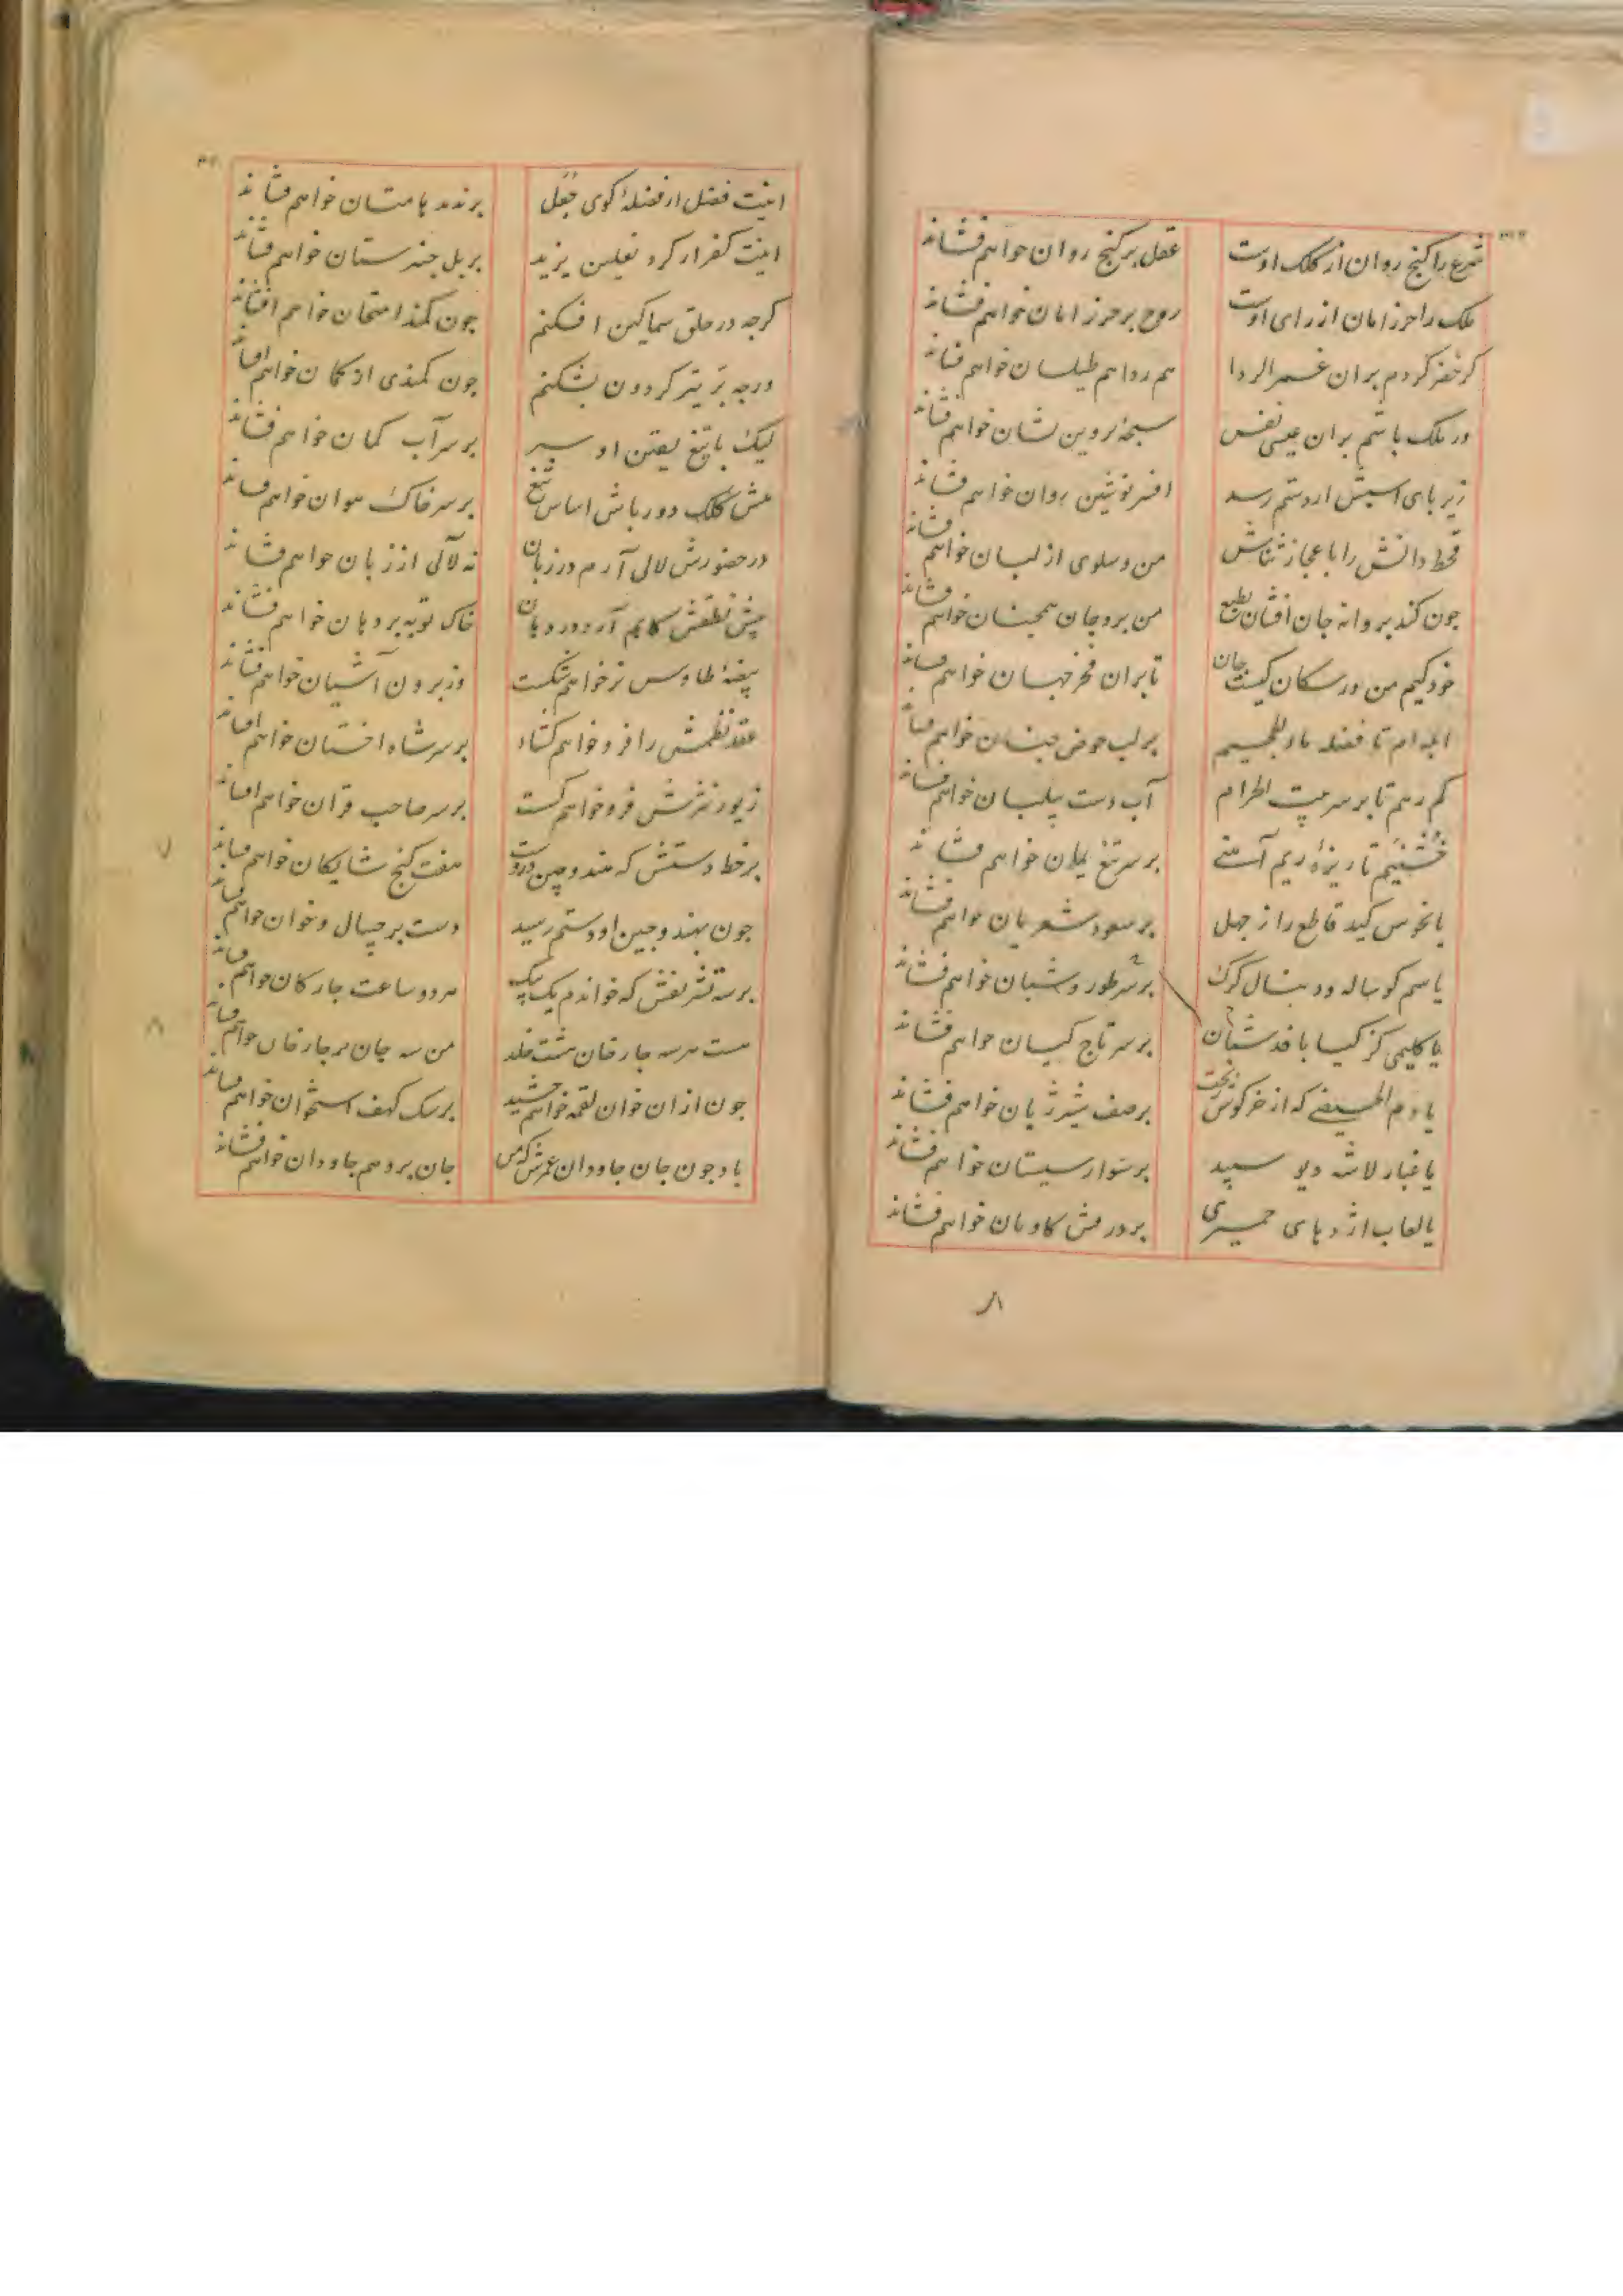 شرع را کنج روان از کلک اوست عقل بر کنج روان خواهم فشاند
ملک را حرز امان از رای اوست روح بر حرز امان خواهم فشاند
کر خضر کردم بران غمر الردا هم ردا هم طیلسان خواهم فشاند
ور ملک باشم بران عیسی نفس سبحهٔ پروین نشان خواهم فشاند
زیر بای اسبش ار دستم رسد افسر نوشین روان خواهم فشاند
قحط دانش را باعجاز ثناش من و سلوی از لسان خواهم فشاند
جون کند بروانه جان افشان بطبع من برو جان همجنان خواهم فشاند
خود کیم من ور سکان کیست جان تا بران فخر جهان خواهم فشاند
ابله ام تا فضله ماء الحمیم بر لب حوض جنان خواهم فشاند
کم رهم تا بر سر بیت الحرام آب دست بیلبان خواهم فشاند
خشنیم تا ریزهٔ ریم آهنی بر سر تیغ یمان خواهم فشاند
یا نحوس کید قاطع را ز جهل بر سعود شعریان خواهم فشاند
یا سم کوساله و دنبال کرک بر سر طور و شبان خواهم فشاند
یا کلیمی کز کیسا بافد شبان بر سر تاج کیان خواهم فشاند
یا دم الحیضی که از خرکوش ریخت بر صف شیر ژیان خواهم فشاند
یا غبار لاشه دیو سپید بر سوار سیستان خواهم فشاند
یا لعاب اژدهای حمیری بر درفش کاویان خواهم فشاند
اینت فضل ار فضلهٔ کوی جعل بر ندد یا مستان خواهم فشاند
اینت کفر ار کرد نعلین یزید بر یل خضرستان خواهم فشاند
کرجه در حلق سماکین افکنم جون کمند امتحان خواهم افشاند
ورجه بر تیر کردون بشکنم جون کمندی از کمان خواهم افشاند
لیک با تیغ یقین او سپر بر سر آب کمان خواهم فشاند
بیش کلک دورباش اساس تیغ بر سر خاک هوان خواهم فشاند
در حضورش لالی آرم در زبان نه لآلی از زبان خواهم فشاند
بیش نطقش کایم آرد در دهان خاک توبه بر دهان خواهم فشاند
بیضهٔ طاوس نر خواهم شکست وز برون آشیان خواهم فشاند
عقد نظمش را فرو خواهم کشاد بر سر شاه اخستان خواهم افشاند
زیور نثرش فرو خواهم کست بر سر صاحب قران خواهم افشاند
بر خط دستش که هند و چین دروست هفت کنج شایکان خواهم فشاند
جون بهند و جین او دستم رسید دست بر چیپال و خوان خواهم فشاند
بر سه تشریفش که خواندم یک بیک هر دو ساعت جار کان خواهم فشاند
هست هر سه جار خان هشت خلد من سه جان بر جار خان خواهم فشاند
جون ازان خوان لقمه خواهم چشید بر سک کهف استخوان خواهم فشاند
باد جون جان جاودان عمرش که من جان برو هم جاودان خواهم فشاند
۷
۸